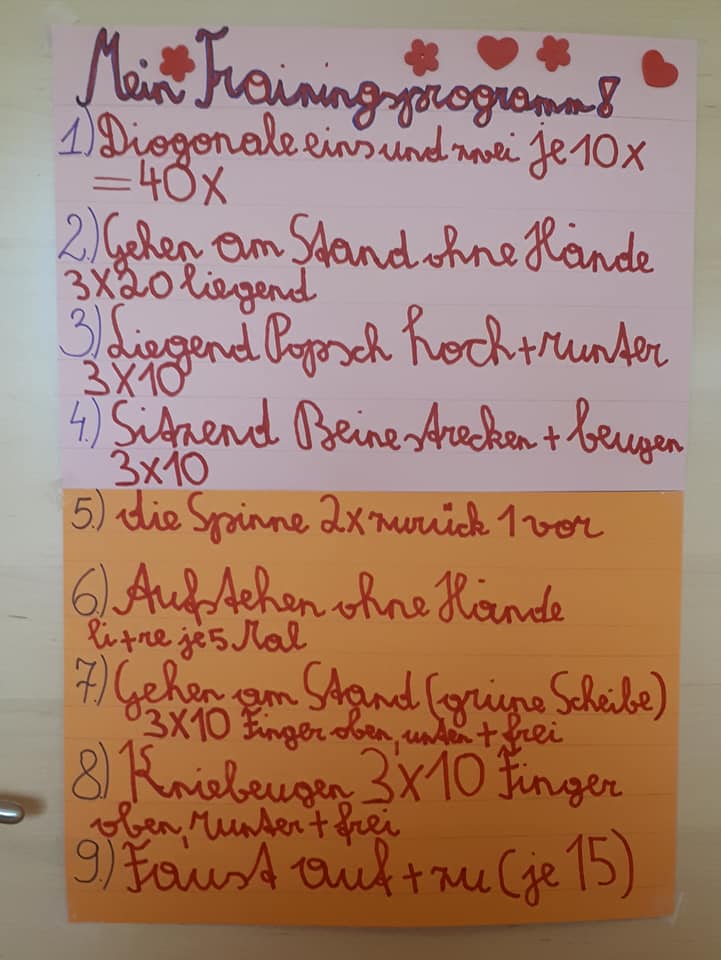 Mein Trainingsprogramm!
1.) Diogonale eins und zwei je 10x
= 40x
2.) Gehen am Stand ohne Hände
3x20 liegend
3.) Liegend Popsch hoch + runter
3x10
4.) Sitzend Beine strecken + beugen
3x10
5.) die Spinne 2x zurück 1 vor
6.) Aufstehen ohne Hände
li + re je 5 Mal
7.) Gehen am Stand (grüne Scheibe)
3x10 Finger oben, unten + frei
8.) Kniebeugen 3x10 Finger
oben, runter + frei
9.) Faust auf + zu (je 15)